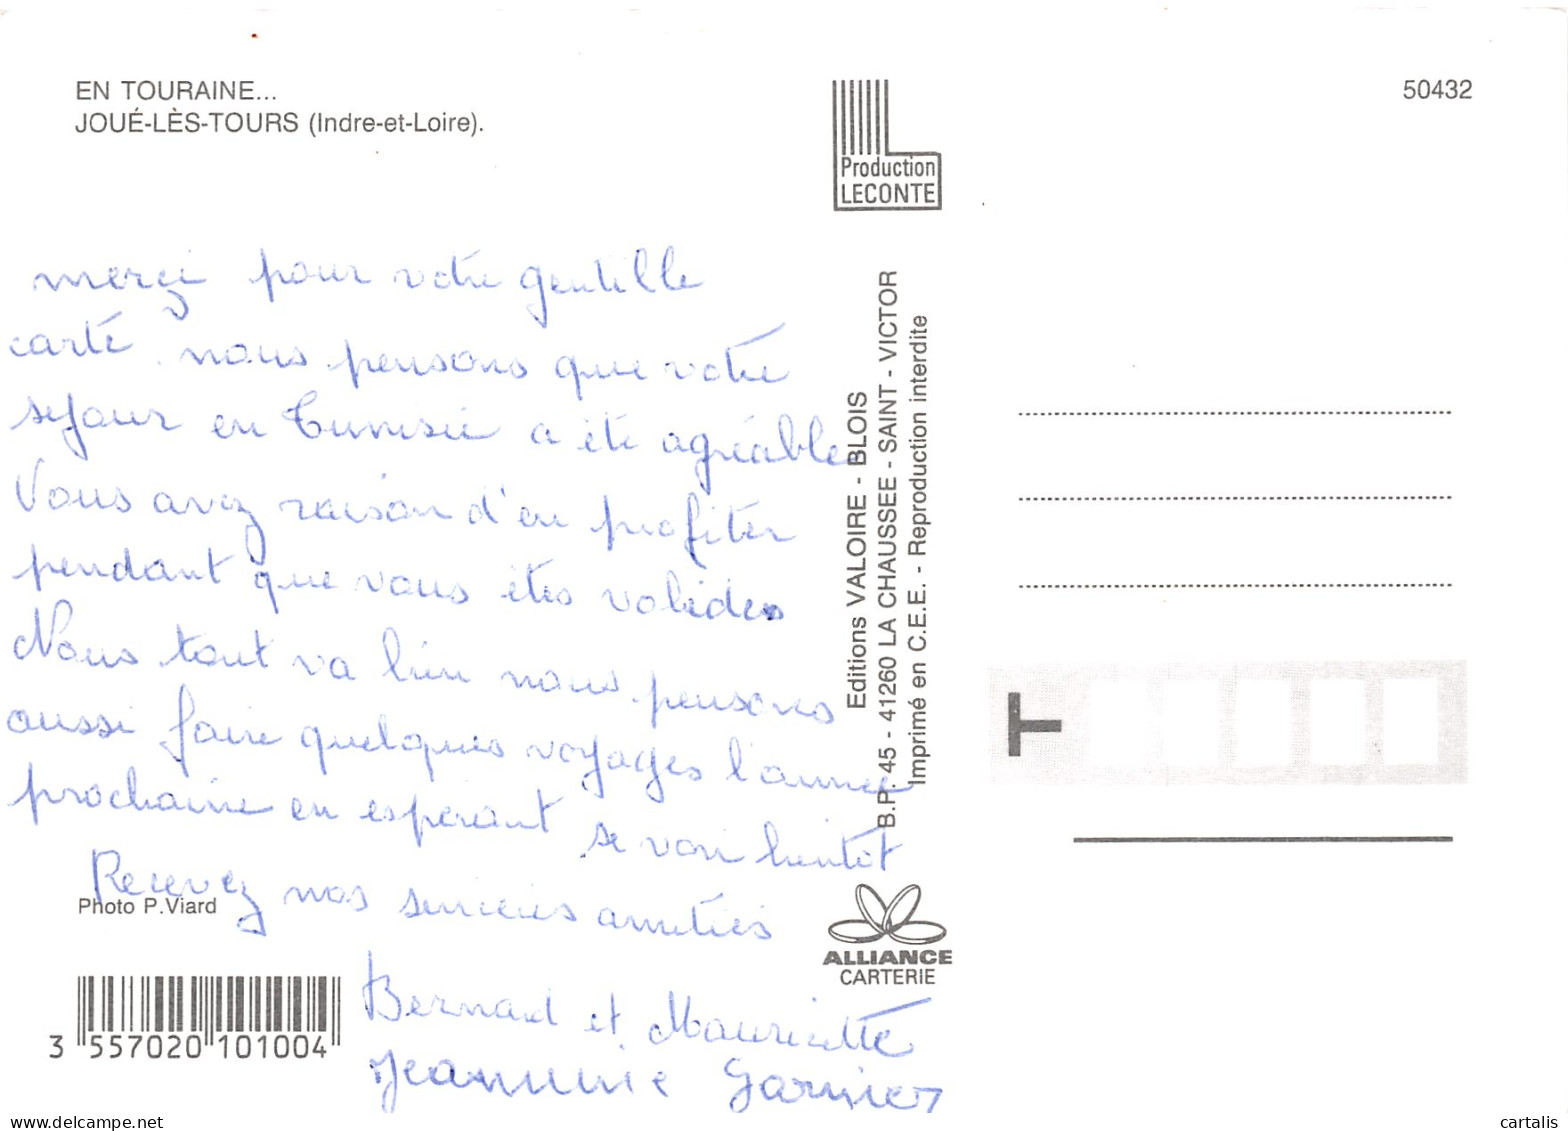 EN TOURAINE...
JOUÉ-LÈS-TOURS (Indre-et-Loire).
50432
Production
LECONTE
merci pour votre gentille
carte. nous pensons que votre
séjour en Tunisie a été agréable
Vous avez raison d'en profiter
pendant que vous êtes valides
Nous tout va bien nous pensons
aussi faire quelques voyages l'année
prochaine en espérant se voir bientôt
Recevez nos sincères amitiés
Bernard et Mauricette
Jeannine Garnier
Editions VALOIRE - BLOIS
B.P. 45 - 41260 LA CHAUSSEE - SAINT - VICTOR
Imprimé en C.E.E. - Reproduction interdite
T
Photo P.Viard
ALLIANCE
CARTERIE
3 557020 101004
www.delcampe.net
cartalis